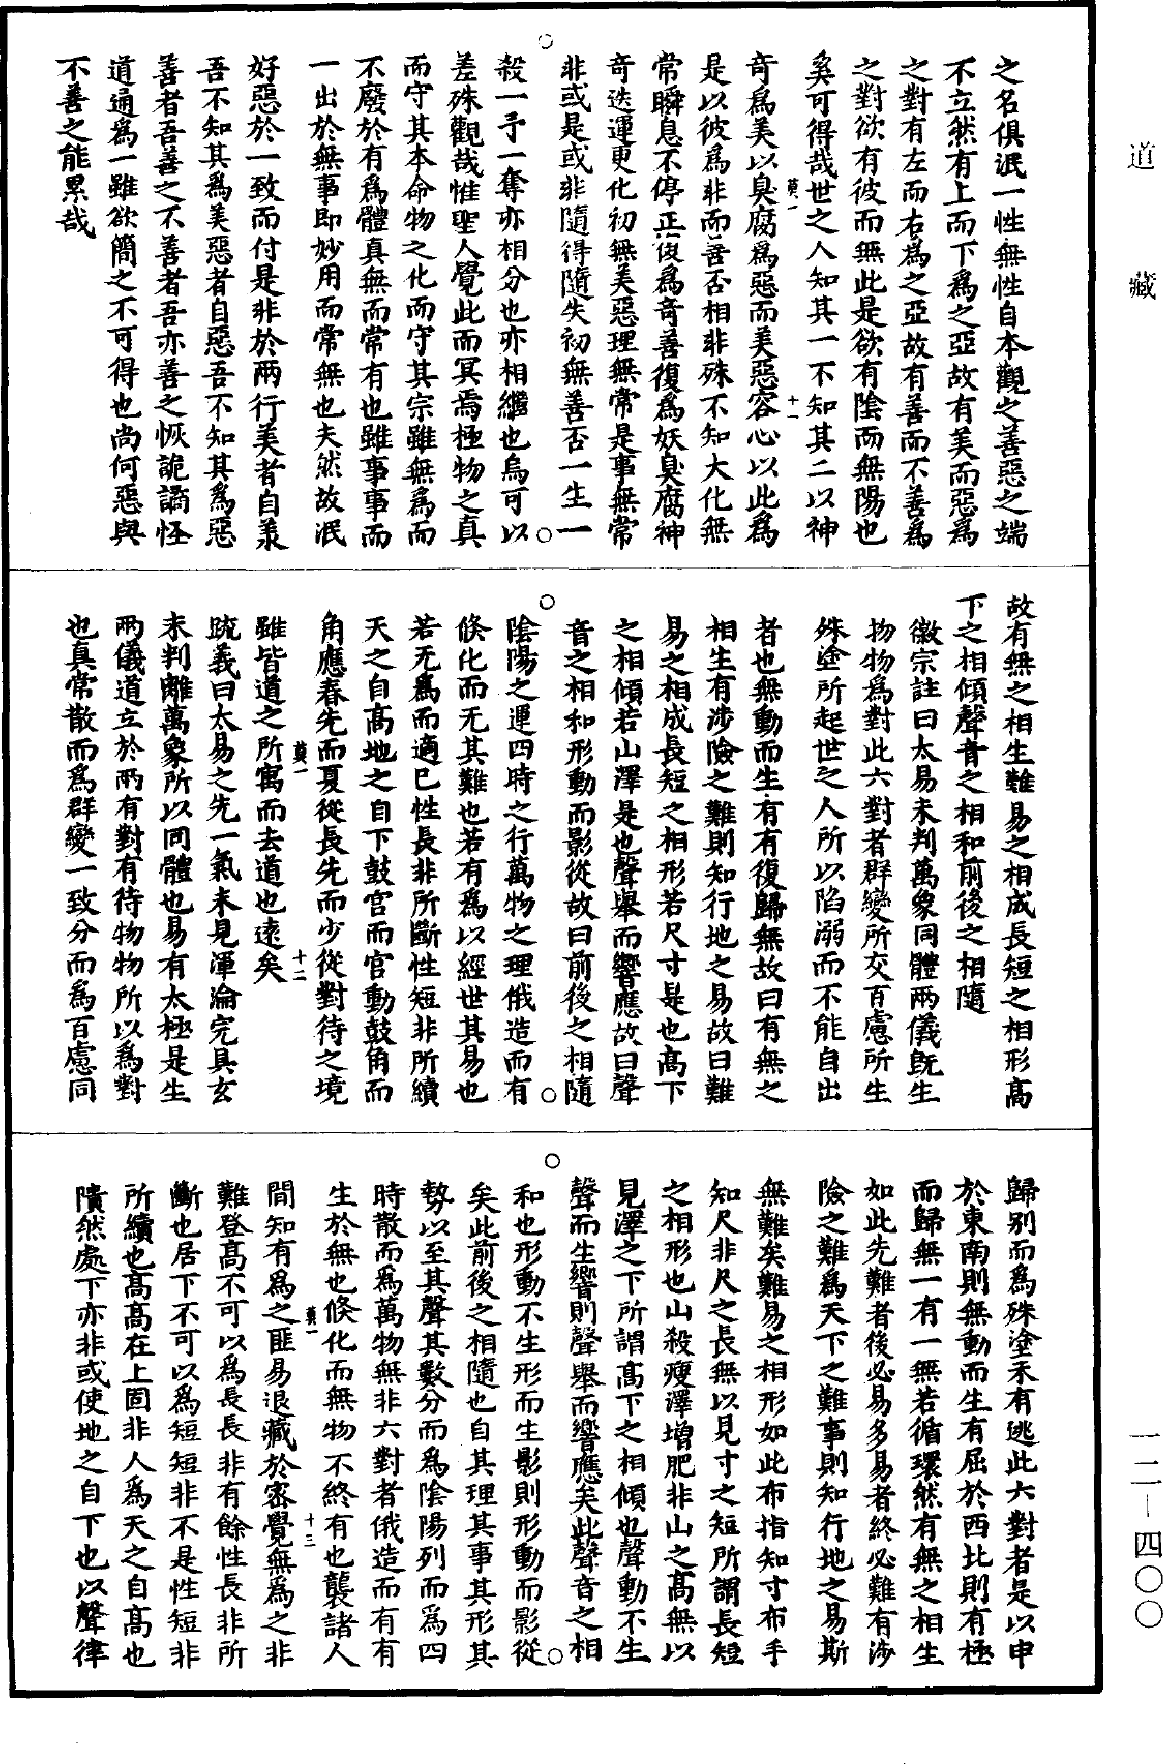 道藏
一二—四〇〇
之名俱泯一性無性自本觀之善惡之端
不立然有上而下爲之亞故有美而惡爲
之對有左而右爲之亞故有善而不善爲
之對欲有彼而無此是欲有陰而無陽也
奚可得哉世之人知其一不知其二以神
莫一
十一
奇爲美以臭腐爲惡而美惡容心以此爲
是以彼爲非而善否相非殊不知大化無
常瞬息不停正復爲奇善復爲妖臭腐神
奇迭運更化初無美惡理無常是事無常
非或是或非隨得隨失初無善否一生一
殺一予一奪亦相分也亦相繼也烏可以
差殊觀哉惟聖人覺此而冥焉極物之真
而守其本命物之化而守其宗雖無爲而
不廢於有爲體真無而常有也雖事事而
一出於無事即妙用而常無也夫然故泯
好惡於一致而付是非於兩行美者自美
吾不知其爲美惡者自惡吾不知其爲惡
善者吾善之不善者吾亦善之恢詭譎怪
道通爲一雖欲簡之不可得也尚何惡與
不善之能累哉
故有無之相生難易之相成長短之相形高
下之相傾聲音之相和前後之相隨
徽宗註曰太易未判萬象同體兩儀既生
物物爲對此六對者群變所交百慮所生
殊塗所起世之人所以陷溺而不能自出
者也無動而生有有復歸無故曰有無之
相生有涉險之難則知行地之易故曰難
易之相成長短之相形若尺寸是也高下
之相傾若山澤是也聲舉而響應故曰聲
音之相和形動而影從故曰前後之相隨
陰陽之運四時之行萬物之理俄造而有
倏化而无其難也若有爲以經世其易也
若无爲而適已性長非所斷性短非所續
天之自高地之自下鼓宫而宫動鼓角而
角應春先而夏從長先而少從對待之境
雖皆道之所寓而去道也遠矣
莫一
十二
疏義曰太易之先一氣未見渾淪完具玄
未判離萬象所以同體也易有太極是生
兩儀道立於兩有對有待物物所以爲對
也真常散而爲群變一致分而爲百慮同
歸别而爲殊塗未有逃此六對者是以申
於東南則無動而生有屈於西北則有極
而歸無一有一無若循環然有無之相生
如此先難者後必易多易者終必難有涉
險之難爲天下之難事則知行地之易斯
無難矣難易之相形如此布指知寸布手
知尺非尺之長無以見寸之短所謂長短
之相形也山殺瘦澤增肥非山之高無以
見澤之下所謂高下之相傾也聲動不生
聲而生響則聲舉而響應矣此聲音之相
和也形動不生形而生影則形動而影從
矣此前後之相隨也自其理其事其形其
勢以至其聲其數分而爲陰陽列而爲四
時散而爲萬物無非六對者俄造而有有
生於無也倏化而無物不終有也襲諸人
莫一
十三
間知有爲之匪易退藏於密覺無爲之非
難登高不可以爲長長非有餘性長非所
斷也居下不可以爲短短非不是性短非
所續也高高在上固非人爲天之自高也
隤然處下亦非或使地之自下也以聲律